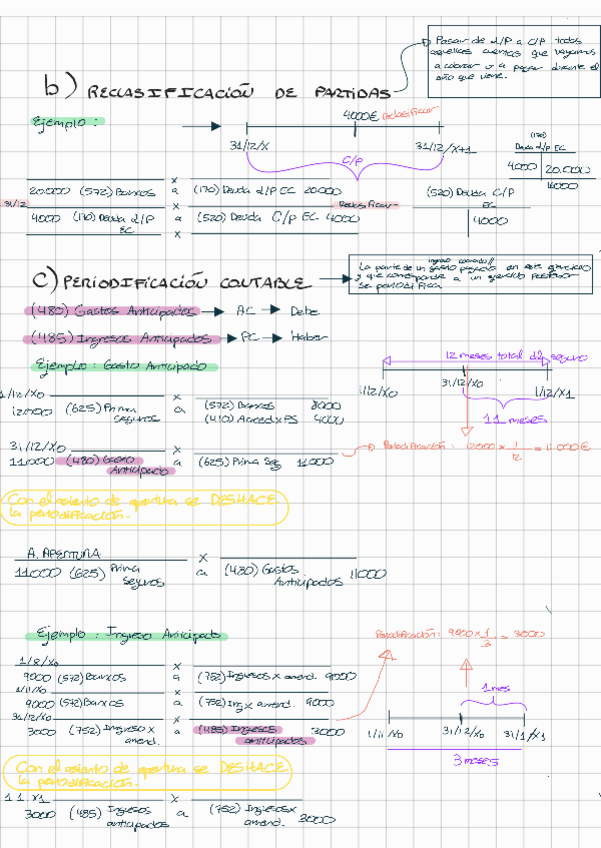 Pasar de l/P a C/P todas
aquellas cuentas que vayamos
a cobrar o a pagar durante el
año que viene.
b) RECLASIFICACIÓN DE PARTIDAS
Ejemplo:
4000€ reclasificar
31/12/X
31/12/X+1
C/P
(170)
Deuda l/p EC
4000 20.000
16000
x
20.000 (572) Bancos a (170) Deuda l/P EC 20000
31/12 x Reclasificar
4000 (170) Deuda l/P EC a (520) Deuda C/P EC 4000
x
(520) Deuda C/P
EC
4000
c) PERIODIFICACIÓN CONTABLE
ingreso cobrado//
La parte de un gasto pagado en este ejercicio
y que corresponde a un ejercicio posterior
se periodifica
(480) Gastos Anticipados → AC → Debe
(485) Ingresos Anticipados → PC → Haber
Ejemplo: Gasto Anticipado
12 meses total del seguro
1/12/X0
31/12/X0
1/12/X1
11 meses
1/12/X0 x
12000 (625) Prima Seguros a (572) Bancos 8000
(410) Acreed x PS 4000
31/12/X0 x
11000 (480) Gasto Anticipado a (625) Prima Seg 11000
Periodificación: 12000 x 1/12 = 11.000€
Con el asiento de apertura se DESHACE
la periodificación.
A. APERTURA x
11000 (625) Prima Seguros a (480) Gastos Anticipados 11000
Ejemplo: Ingreso Anticipado
Periodificación: 9000 x 1/3 = 3000
1/8/X0 x
9000 (572) Bancos a (752) Ingresos x arrend. 9000
1/11/X0 x
9000 (572) Bancos a (752) Ing x arrend. 9000
31/12/X0 x
3000 (752) Ingreso x arrend. a (485) Ingresos anticipados 3000
1 mes
1/11/X0
31/12/X0
31/1/X1
3 meses
Con el asiento de apertura se DESHACE
la periodificación.
1.1.X1 x
3000 (485) Ingresos anticipados a (752) Ingresos x arrend. 3000